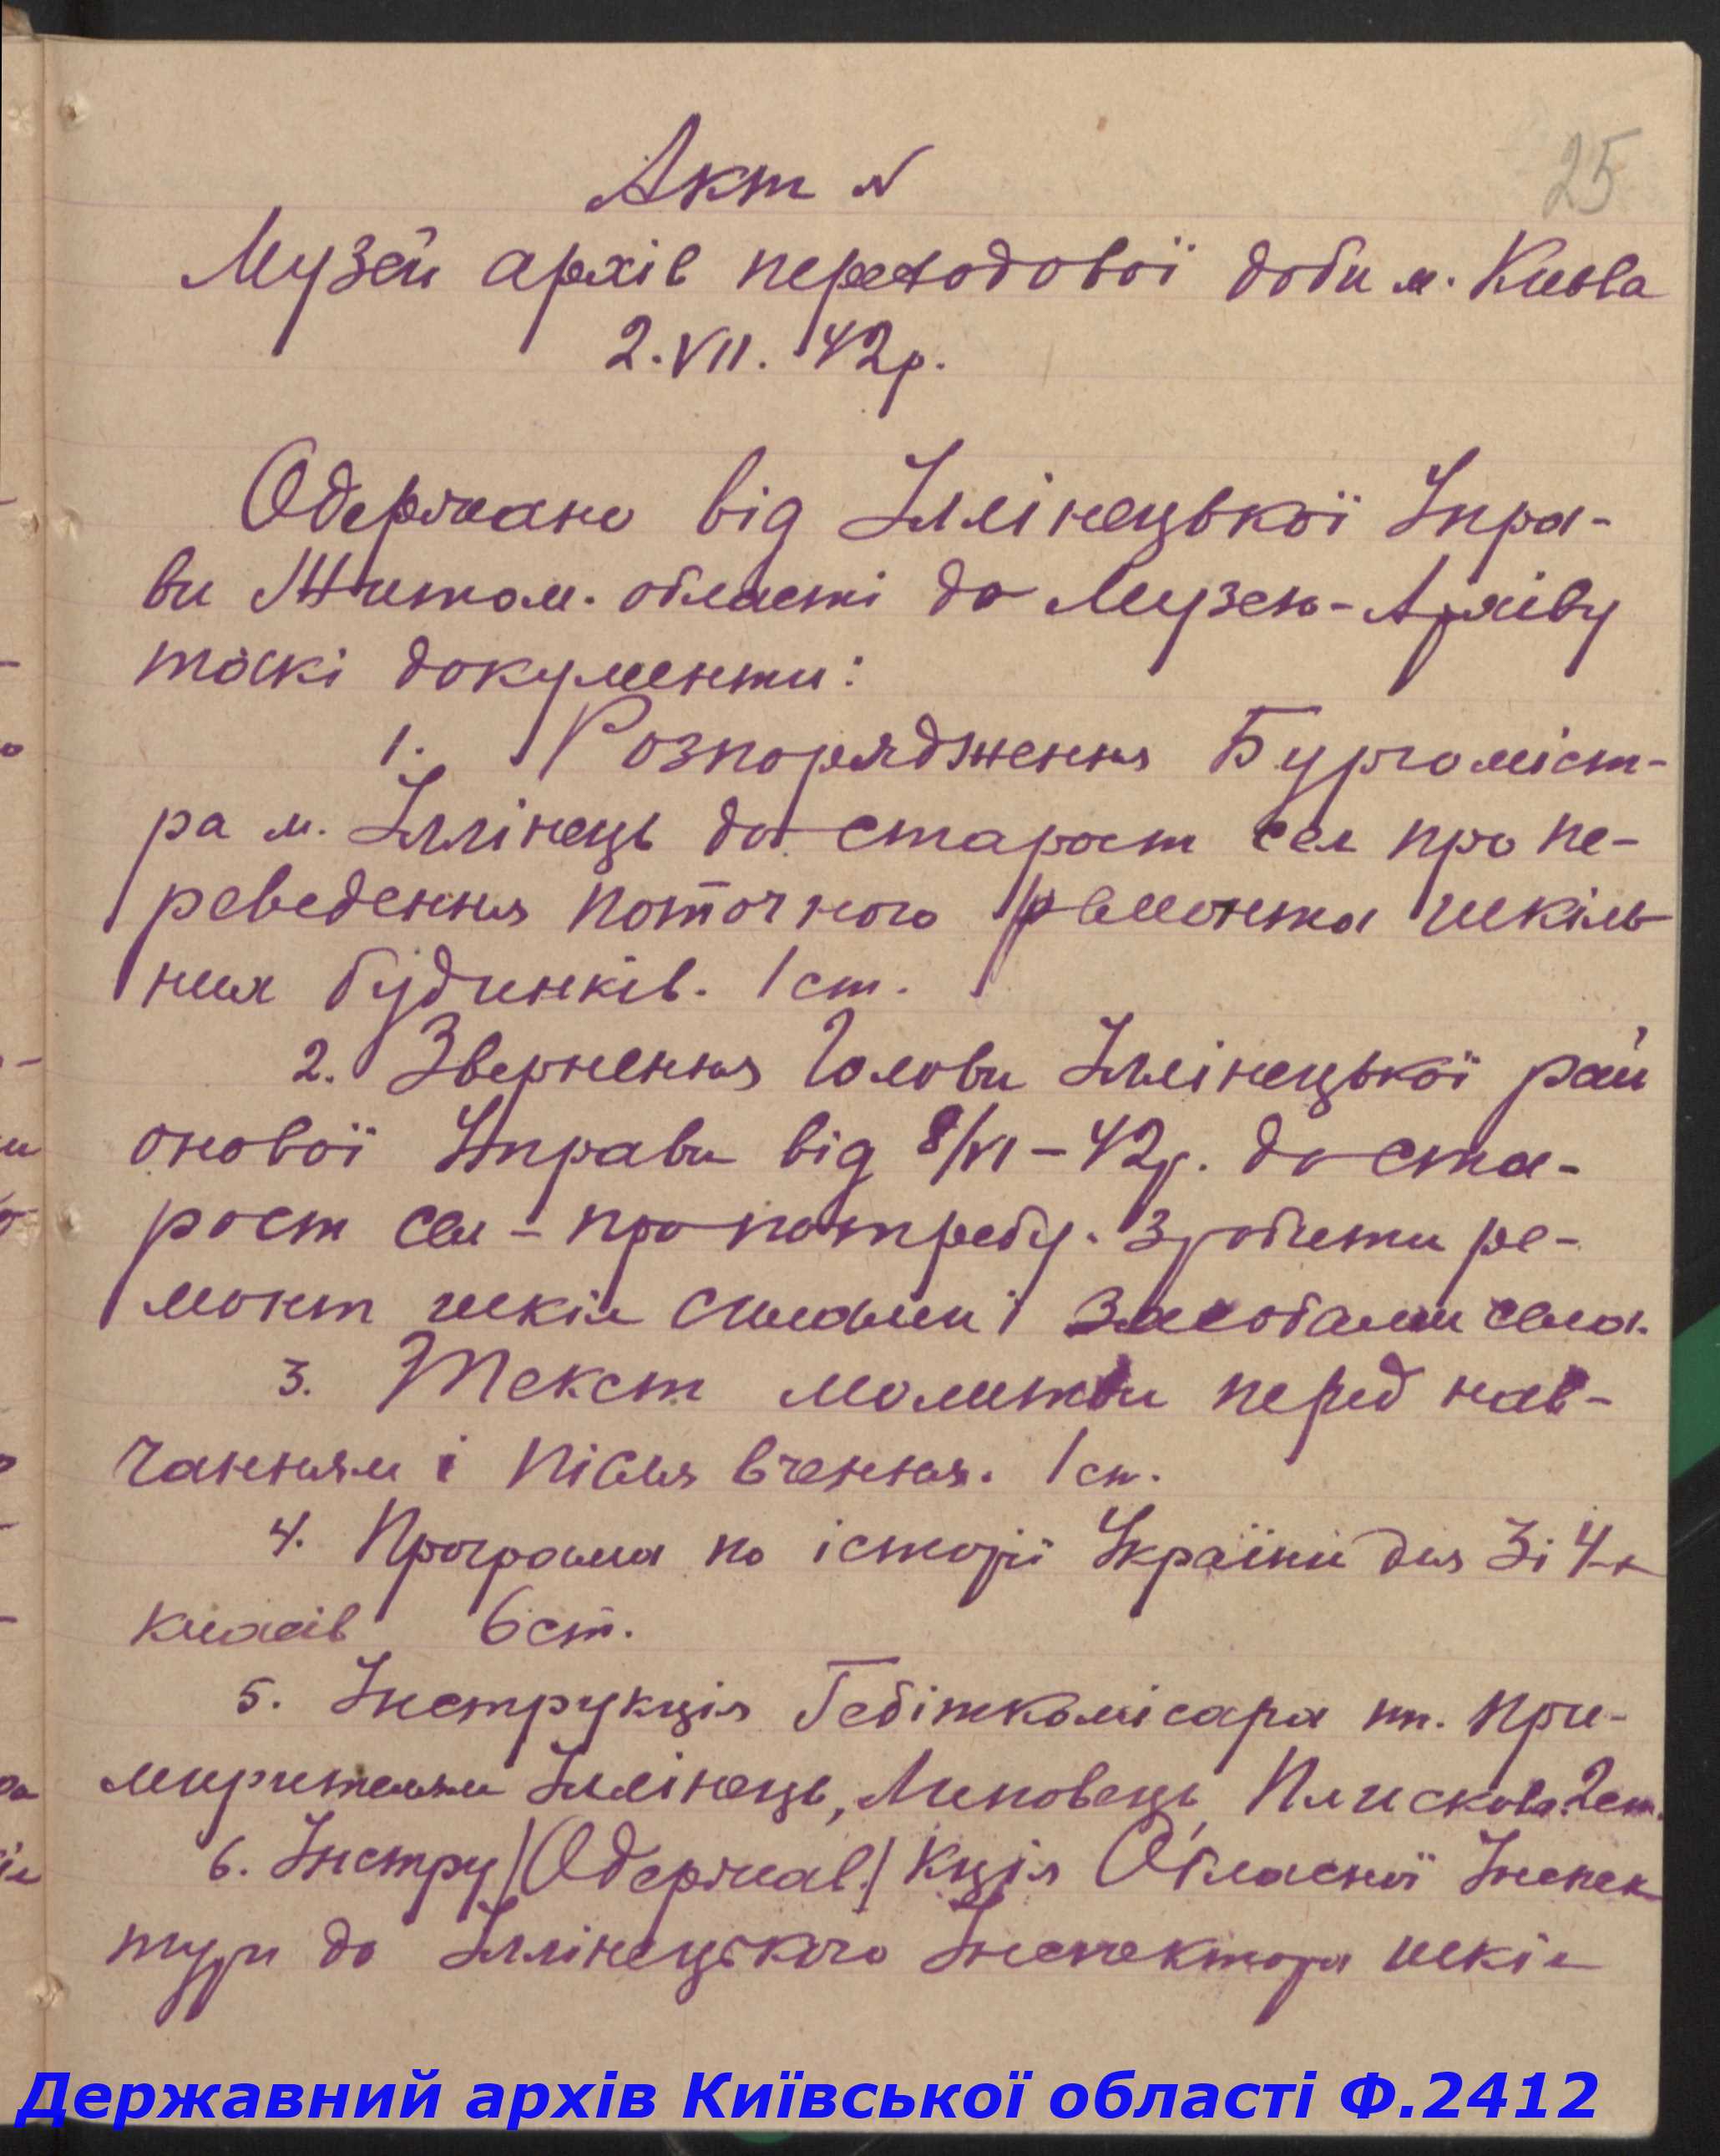 25
Акт №
Музей архів переходової доби м. Києва
2.VII. 42р.
Одержано від Іллінецької Упра-
ви Житом. області до Музею-Архіву
такі документи:
1. Розпорядження Бургоміст-
ра м. Іллінець до старост сел про пе-
реведення поточного ремонта шкіль-
них будинків. 1 ст.
2. Звернення Голови Іллінецької рай
онової Управи від 8/VI-42р. до ста-
рост сел - про потребу зробити ре-
монт шкіл силами і засобами села.
3. Текст молитви перед нав-
чанням і після вчення. 1 ст.
4. Програма по історії України для 3 і 4-х
класів 6 ст.
5. Інструкція Гебіткомісара пп. При-
мирителям Іллінець, Липовець, Плискова. 2 ст.
6. Інстру/Одержав/кція Обласної Інспек
тури до Іллінецького Інспектора шкіл
Державний архів Київської області Ф.2412